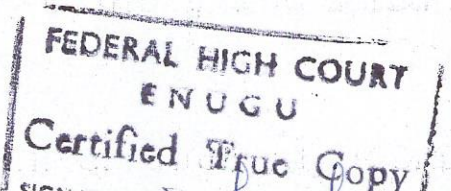 FEDERAL HIGH COURT
ENUGU
Certified True Copy
SIGN